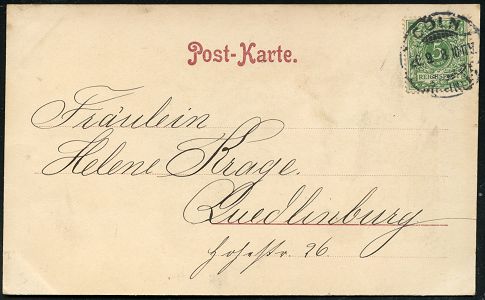 Post-Karte.
CÖLN
5
REICHSPOST
Fräulein
Helene Krage.
Quedlinburg
Hohestr. 26.